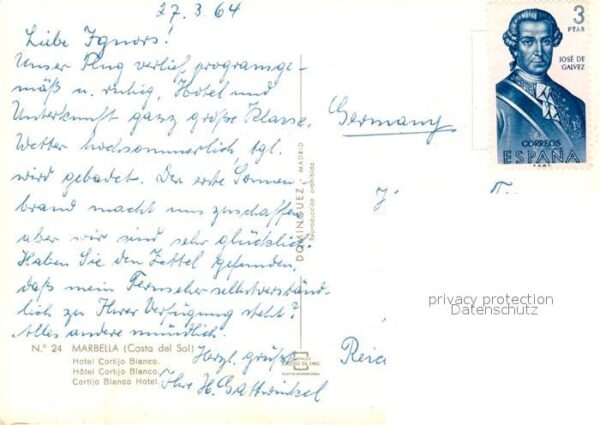 27.3.64
Liebe Ignors!
Unser Flug verlief programge-
mäß u. ruhig, Hotel und
Unterkunft ganz große Klasse.
Wetter hochsommerlich, tgl.
wird gebadet. Der erste Sonnen-
brand macht uns zuschaffen
aber wir sind sehr glücklich!
Haben Sie den Zettel gefunden,
daß mein Fernseher selbstverständ-
lich zu Ihrer Verfügung steht?
Alles andere mündlich.
N.º 24 MARBELLA (Costa del Sol)
Hotel Cortijo Blanco.
Hôtel Cortijo Blanco.
Cortijo Blanco Hotel.
Herzl. grüßt
Ihre H. Gattwinkel
DOMINGUEZ MADRID
Reproducción prohibida
3
PTAS
JOSÉ DE
GALVEZ
CORREOS
ESPAÑA
Germany
privacy protection
Datenschutz